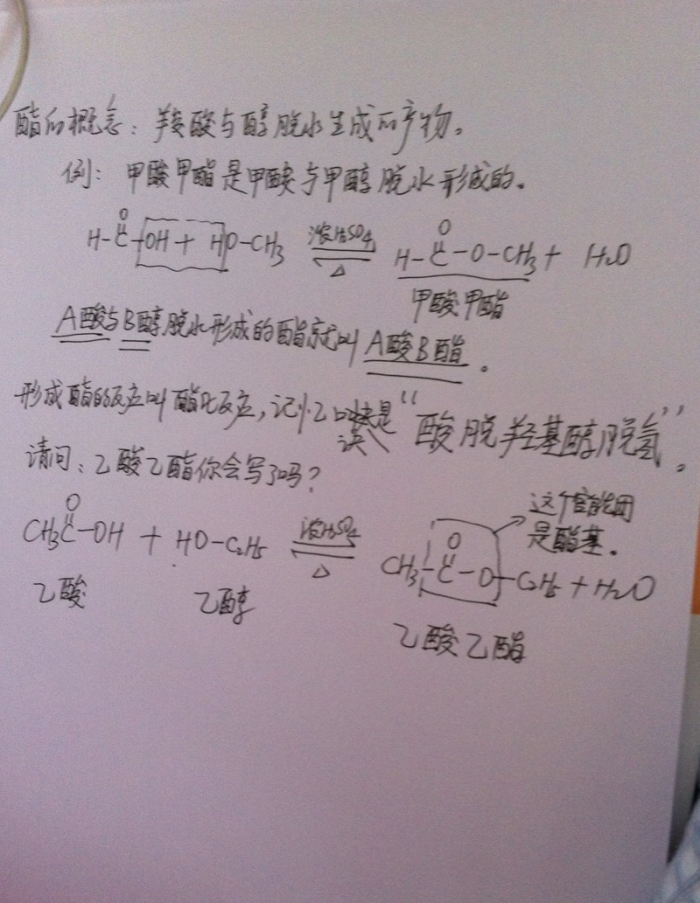 酯的概念：羧酸与醇脱水生成的产物。
例：甲酸甲酯是甲酸与甲醇脱水形成的。
O O
H-C-OH + HO-CH3 浓H2SO4 ⇌ △ H-C-O-CH3 + H2O
甲酸甲酯
A酸与B醇脱水形成的酯就叫A酸B酯。
形成酯的反应叫酯化反应，记忆口诀是“酸脱羟基醇脱氢”。
请问：乙酸乙酯你会写了吗？
这个官能团
是酯基。
O O
CH3C-OH + HO-C2H5 浓H2SO4 ⇌ △ CH3-C-O-C2H5 + H2O
乙酸 乙醇 乙酸乙酯